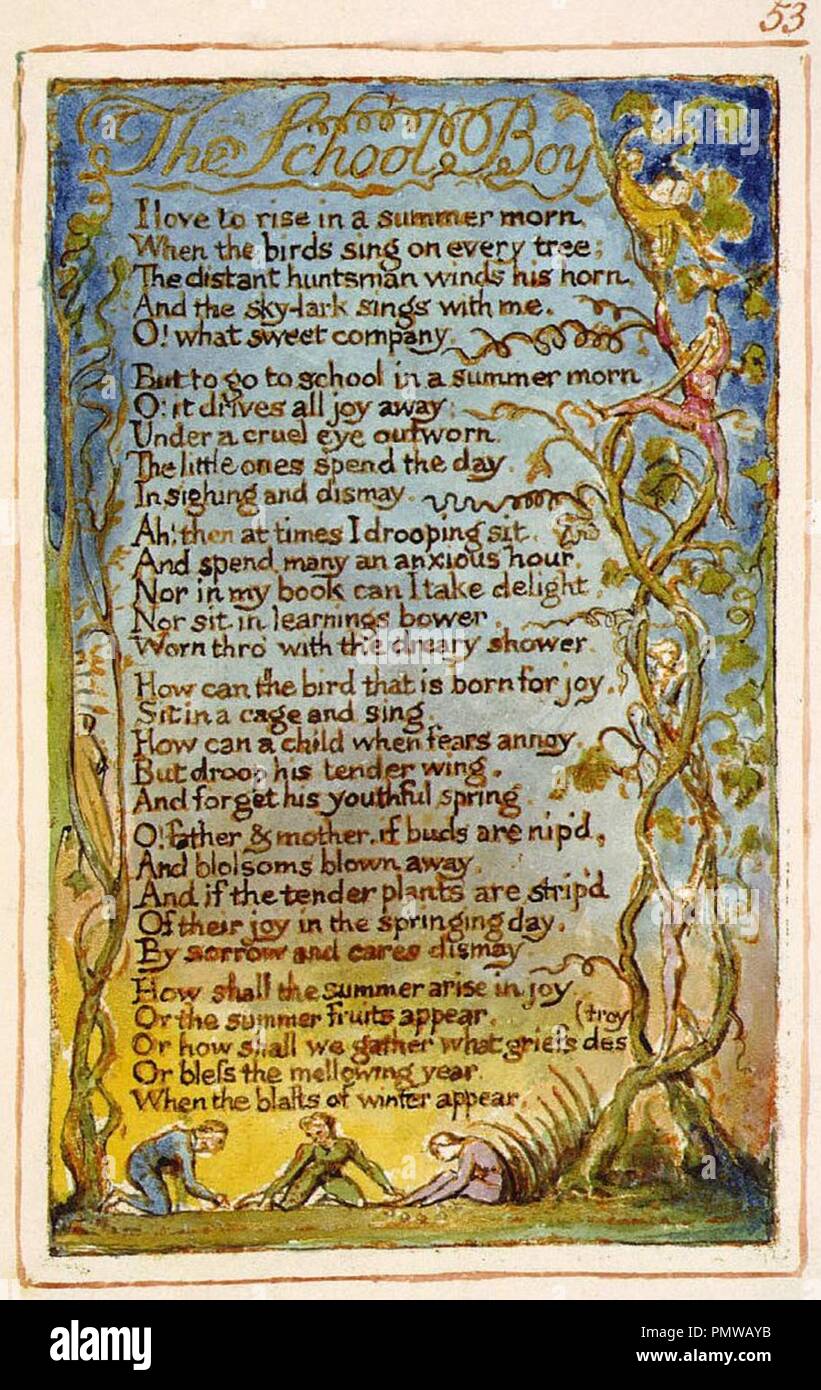 53
The School Boy
I love to rise in a summer morn,
When the birds sing on every tree;
The distant huntsman winds his horn,
And the sky-lark sings with me.
O! what sweet company.
But to go to school in a summer morn
O! it drives all joy away;
Under a cruel eye outworn.
The little ones spend the day.
In sighing and dismay.
Ah! then at times I drooping sit.
And spend many an anxious hour.
Nor in my book can I take delight.
Nor sit in learnings bower.
Worn thro' with the dreary shower.
How can the bird that is born for joy.
Sit in a cage and sing.
How can a child when fears annoy.
But droop his tender wing.
And forget his youthful spring
O! father & mother. if buds are nip'd,
And bloſsoms blown away.
And if the tender plants are strip'd
Of their joy in the springing day.
By sorrow and cares dismay
How shall the summer arise in joy
Or the summer fruits appear.
(troy
Or how shall we gather what griefs des
Or bleſs the mellowing year.
When the blasts of winter appear.
alamy
Image ID: PMWAYB
www.alamy.com